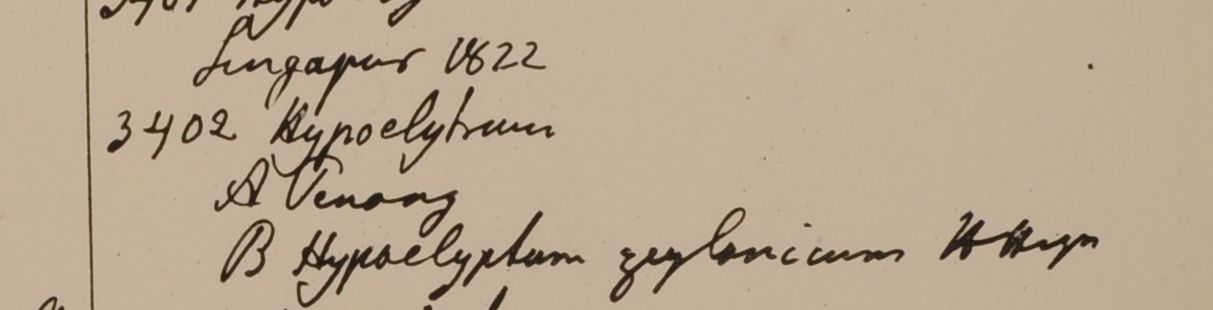 Singapur 1822
3402 Hypoelytrum
A Penang
B Hypoelyptum zeylanicum